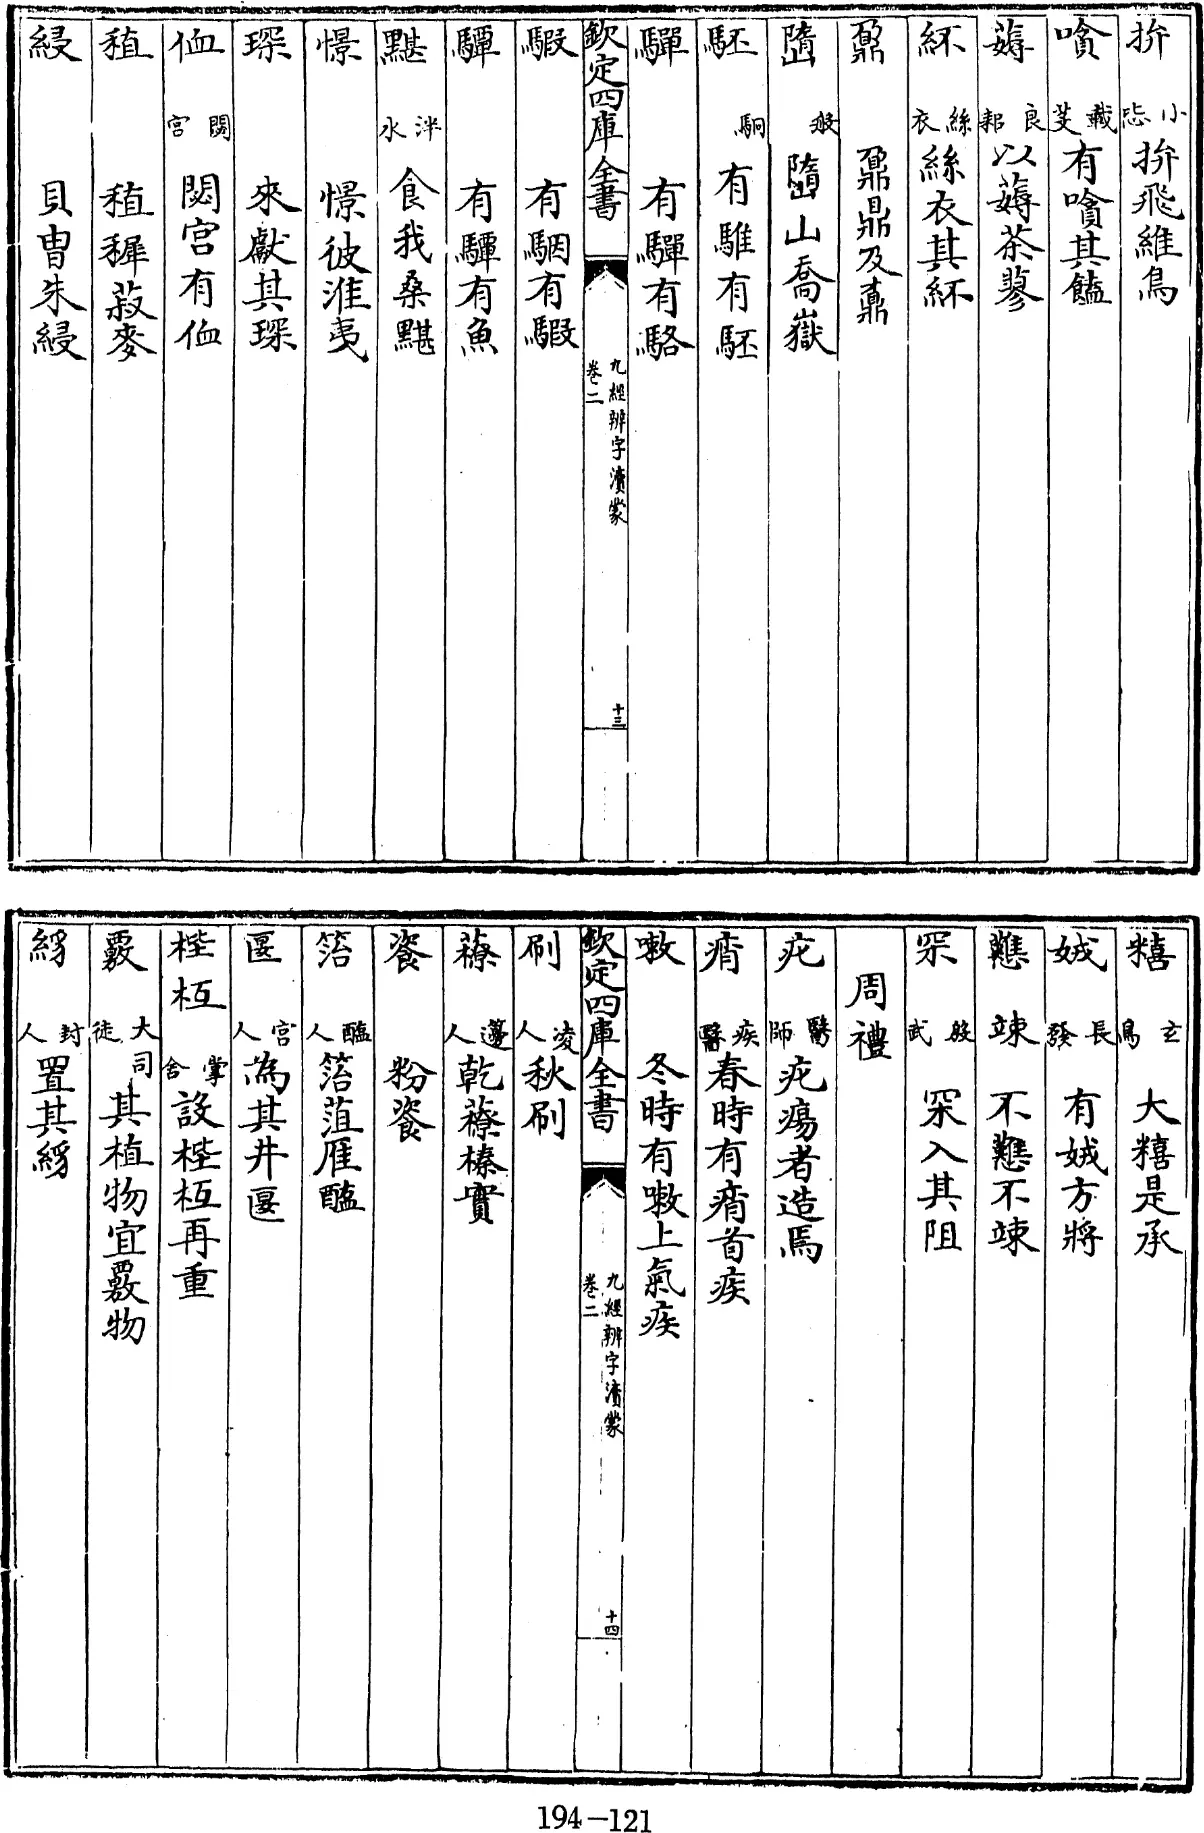 拚 小毖 拚飛維鳥
噾 載芟 有噾其饁
薅 良耜 以薅荼蓼
紑 絲衣 絲衣其紑
鼐 鼐鼎及鼒
嶞 般 嶞山喬嶽
駓 駉 有騅有駓
驒 有驒有駱
欽定四庫全書 九經辨字瀆蒙 卷二 十三
騢 有駰有騢
驔 有驔有魚
黮 泮水 食我桑黮
憬 憬彼淮夷
琛 來獻其琛
侐 閟宮 閟宮有侐
稙 稙穉菽麥
綅 貝胄朱綅
糦 玄鳥 大糦是承
娀 長發 有娀方將
戁竦 不戁不竦
罙 殷武 罙入其阻
周禮
疕 醫師 疕瘍者造焉
痟 疾醫 春時有痟首疾
嗽 冬時有嗽上氣疾
欽定四庫全書 九經辨字瀆蒙 卷二 十四
刷 凌人 秋刷
䕩 籩人 乾䕩榛實
餈 粉餈
箈 醢人 箈菹雁醢
匽 宮人 為其井匽
梐枑 掌舍 設梐枑再重
覈 大司徒 其植物宜覈物
絼 封人 置其絼
194-121